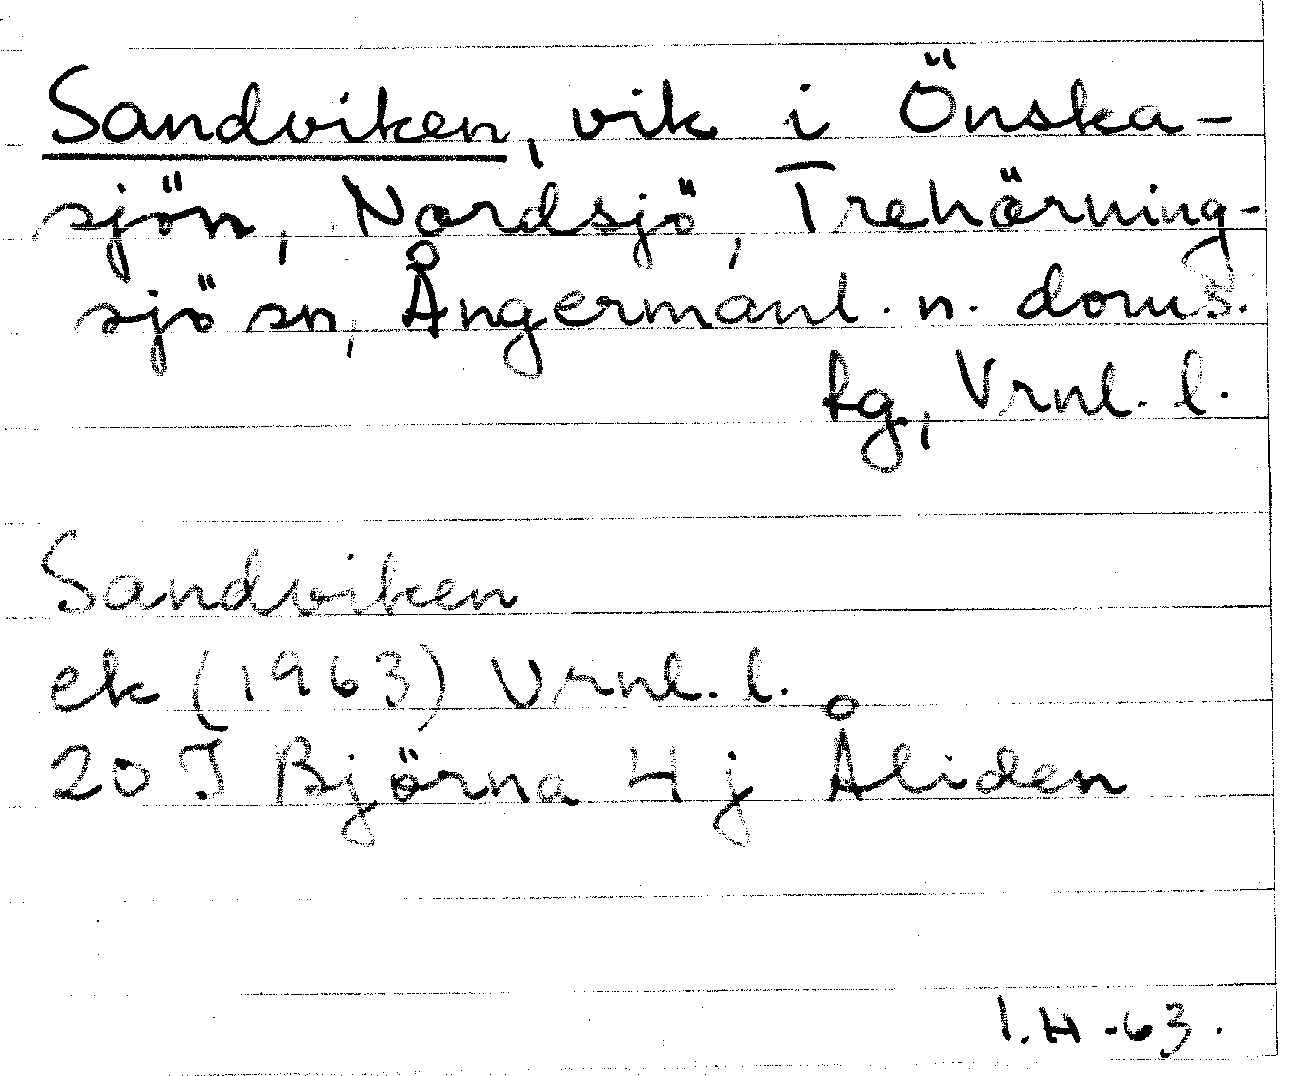 Sandviken, vik i Önska-
sjön, Nordsjö, Trehörning-
sjö sn, Ångermanl. n. doms.
tg, Vrnl. l.
Sandviken
ek (1963) Vrnl. l.
20 J Björna 4 j Åliden
I.H -63.